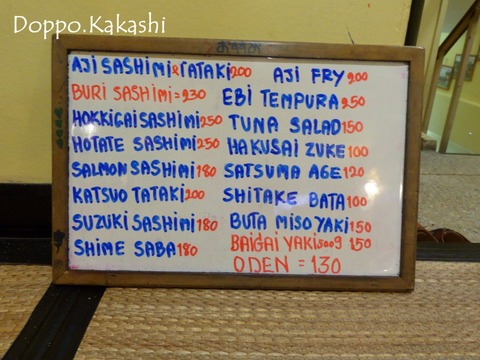 Doppo.Kakashi
おすすめ
AJI SASHIMI & TATAKI 200
BURI SASHIMI = 230
HOKKIGAI SASHIMI 250
HOTATE SASHIMI 250
SALMON SASHIMI 180
KATSUO TATAKI 200
SUZUKI SASHIMI 180
SHIME SABA 180
AJI FRY 200
EBI TEMPURA 250
TUNA SALAD 150
HAKUSAI ZUKE 100
SATSUMA AGE 120
SHITAKE BATA 100
BUTA MISO YAKI 150
BAIGAI YAKI 500g 150
ODEN = 130